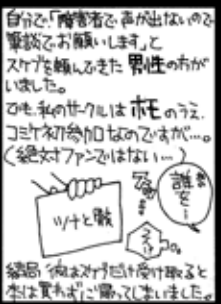 自分で「障害者で声が出ないので
筆談でお願いします」と
スケブを頼んできた男性のかが
いました。
でも、私のサークルはホモのうえ、
コミケ初参加なのですが…。
(絶対ファンではない…)
誰を…
ツナと骸
結局彼はスケブだけ受け取ると
本は買わずに帰ってしまいました。